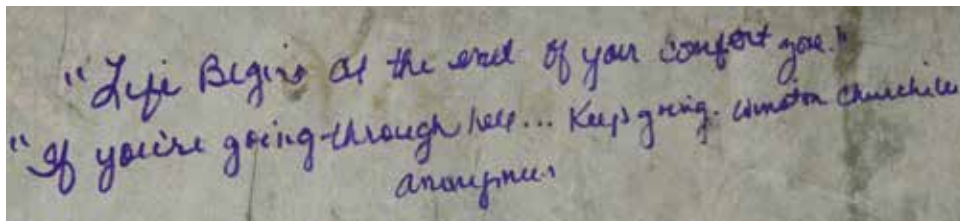 "Life Begins at the end of your comfort zone."
"If you're going through hell... Keep going. Winston Churchill
Anonymous